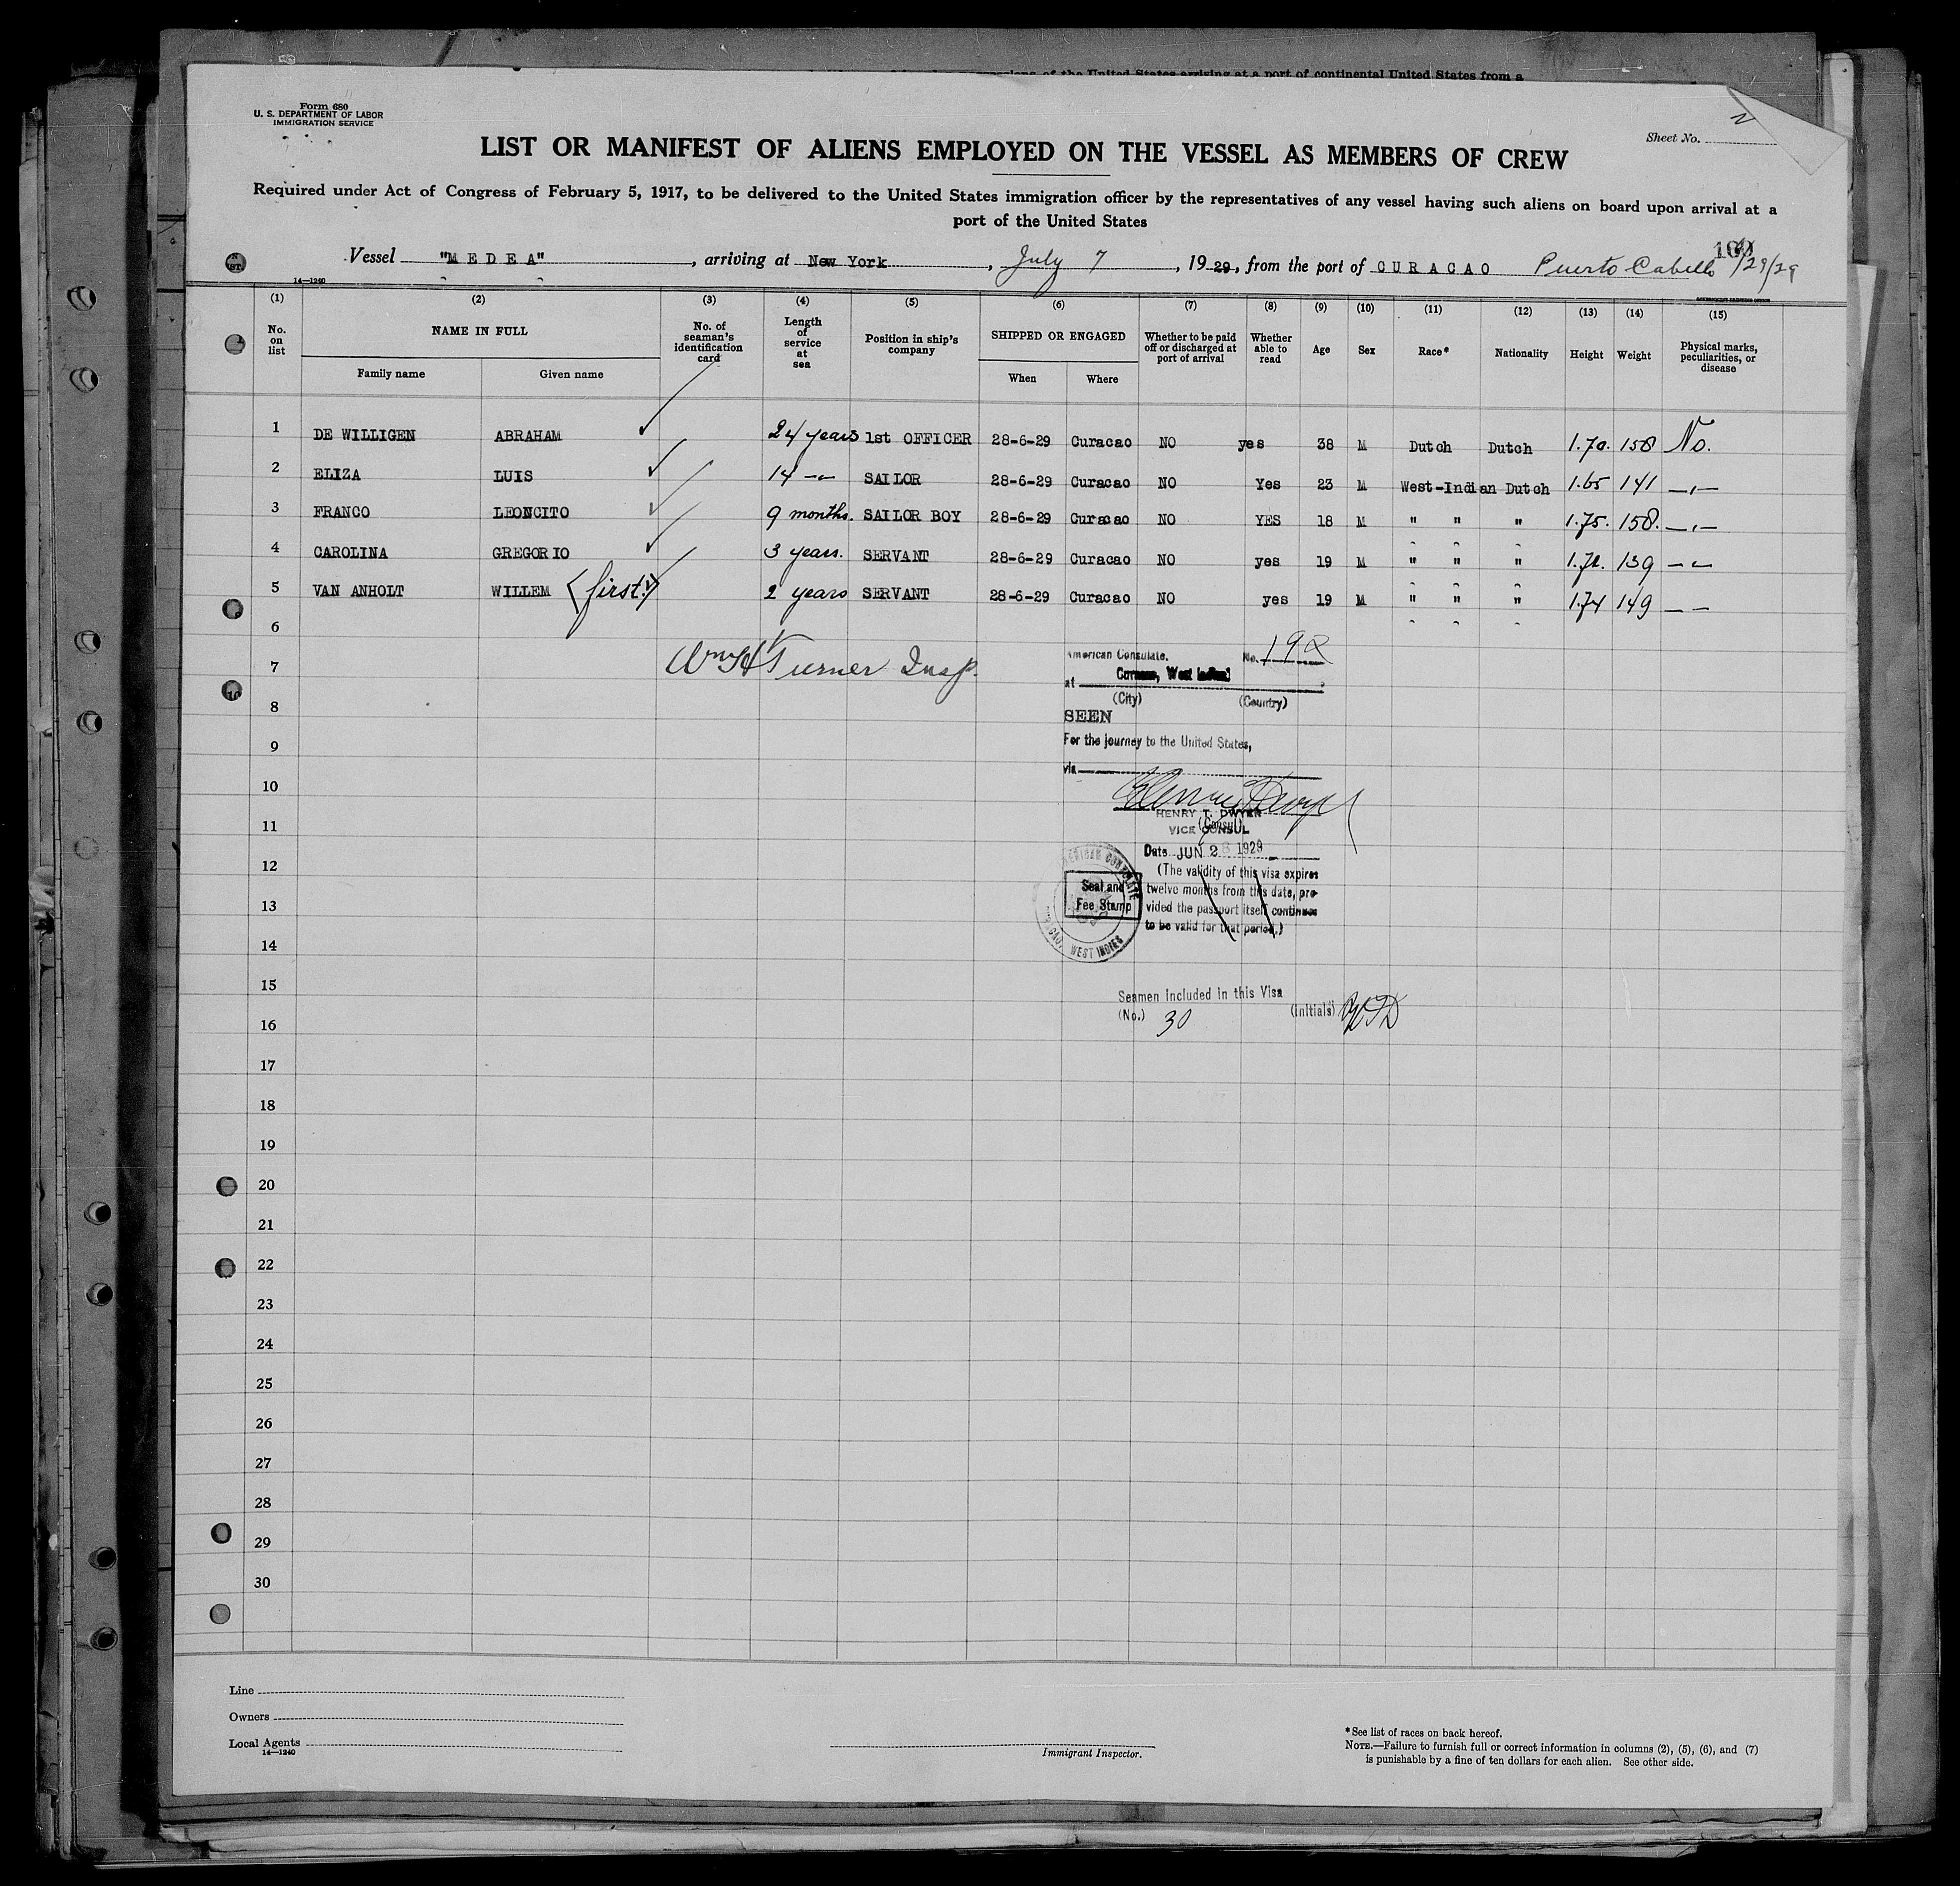 Form 680
U. S. DEPARTMENT OF LABOR
IMMIGRATION SERVICE
Sheet No. 2
LIST OR MANIFEST OF ALIENS EMPLOYED ON THE VESSEL AS MEMBERS OF CREW
Required under Act of Congress of February 5, 1917, to be delivered to the United States immigration officer by the representatives of any vessel having such aliens on board upon arrival at a
port of the United States
Vessel "MEDEA", arriving at New York, July 7, 1929, from the port of CURACAO Puerto Cabello 6/29/29
14—1240
GOVERNMENT PRINTING OFFICE
(1) (2) (3) (4) (5) (6) (7) (8) (9) (10) (11) (12) (13) (14) (15)
No. on list
NAME IN FULL
Family name
Given name
No. of seaman's identification card
Length of service at sea
Position in ship's company
SHIPPED OR ENGAGED
When
Where
Whether to be paid off or discharged at port of arrival
Whether able to read
Age
Sex
Race*
Nationality
Height
Weight
Physical marks, peculiarities, or disease
1 DE WILLIGEN ABRAHAM 24 years 1st OFFICER 28-6-29 Curacao NO yes 38 M Dutch Dutch 1.70. 158 No.
2 ELIZA LUIS 14 -"- SAILOR 28-6-29 Curacao NO Yes 23 M West-Indian Dutch 1.65 141 -"-
3 FRANCO LEONCITO 9 months. SAILOR BOY 28-6-29 Curacao NO YES 18 M " " " 1.75. 158. -"-
4 CAROLINA GREGORIO 3 years. SERVANT 28-6-29 Curacao NO yes 19 M " " " 1.72. 139 -"-
5 VAN ANHOLT WILLEM (first) 2 years SERVANT 28-6-29 Curacao NO yes 19 M " " " 1.74 149 -"-
6
7 Wm H Turner Insp.
8
9
10
11
12
13
14
15
16
17
18
19
20
21
22
23
24
25
26
27
28
29
30
American Consulate. No. 192
at Curacao, West Indies
(City) (Country)
SEEN
For the journey to the United States,
via
HENRY T. DWYER
(Consul)
VICE CONSUL
Date JUN 28 1929
(The validity of this visa expires
twelve months from this date, pro-
vided the passport itself continues
to be valid for that period.)
Seal and
Fee Stamp
AMERICAN CONSULATE
CURACAO, WEST INDIES
Seamen Included in this Visa
(No.) 30 (Initials) HTD
Line
Owners
Local Agents
14—1240
Immigrant Inspector.
*See list of races on back hereof.
NOTE.—Failure to furnish full or correct information in columns (2), (5), (6), and (7)
is punishable by a fine of ten dollars for each alien. See other side.